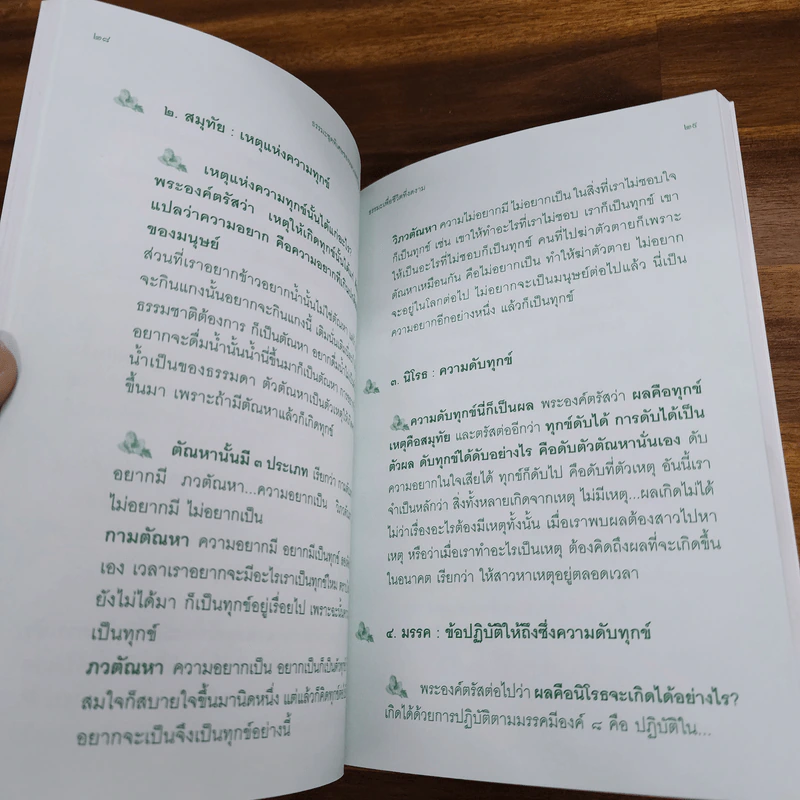 ๒๘
๒. สมุทัย : เหตุแห่งความทุกข์
เหตุแห่งความทุกข์นั้นได้แก่อะไร
พระองค์ตรัสว่า เหตุให้เกิดทุกข์นั้น
แปลว่าความอยาก คือความอยากที่
ของมนุษย์
ส่วนที่เราอยากข้าวอยากน้ำนั้นไม่ใช่ตัณหา
จะกินแกงนั้นอยากจะกินแกงนี้
ธรรมชาติต้องการ ก็เป็นตัณหา อยากดื่มน้ำ
อยากจะดื่มน้ำนั้นน้ำนี่ขึ้นมาก็เป็นตัณหา
น้ำเป็นของธรรมดา ตัวตัณหาเป็นตัวเหตุ
ขึ้นมา เพราะถ้ามีตัณหาแล้วก็เกิดทุกข์
ตัณหานั้นมี ๓ ประเภท เรียกว่า
อยากมี ภวตัณหา...ความอยากเป็น
ไม่อยากมี ไม่อยากเป็น
กามตัณหา ความอยากมี อยากมีเป็นทุกข์
เอง เวลาเราอยากจะมีอะไรเราเป็นทุกข์ไหม
ยังไม่ได้มา ก็เป็นทุกข์อยู่เรื่อยไป
เป็นทุกข์
ภวตัณหา ความอยากเป็น อยากเป็นก็เป็นตัว
สมใจก็สบายใจขึ้นมานิดหนึ่ง แต่แล้วก็คิด
อยากจะเป็นจึงเป็นทุกข์อย่างนี้
๒๙
ธรรมะเพื่อชีวิตที่งดงาม
วิภวตัณหา ความไม่อยากมี ไม่อยากเป็น ในสิ่งที่เราไม่ชอบใจ
ก็เป็นทุกข์ เช่น เขาให้ทำอะไรที่เราไม่ชอบ เราก็เป็นทุกข์ เขา
ให้เป็นอะไรที่ไม่ชอบก็เป็นทุกข์ คนที่ไปฆ่าตัวตายก็เพราะ
ตัณหาเหมือนกัน คือไม่อยากเป็น ทำให้ฆ่าตัวตาย ไม่อยาก
จะอยู่ในโลกต่อไป ไม่อยากจะเป็นมนุษย์ต่อไปแล้ว นี่เป็น
ความอยากอีกอย่างหนึ่ง แล้วก็เป็นทุกข์
๓. นิโรธ : ความดับทุกข์
ความดับทุกข์นี่ก็เป็นผล พระองค์ตรัสว่า ผลคือทุกข์
เหตุคือสมุทัย และตรัสต่ออีกว่า ทุกข์ดับได้ การดับได้เป็น
ตัวผล ดับทุกข์ได้ดับอย่างไร คือดับตัวตัณหานั่นเอง ดับ
ความอยากในใจเสียได้ ทุกข์ก็ดับไป คือดับที่ตัวเหตุ อันนี้เรา
จำเป็นหลักว่า สิ่งทั้งหลายเกิดจากเหตุ ไม่มีเหตุ...ผลเกิดไม่ได้
ไม่ว่าเรื่องอะไรต้องมีเหตุทั้งนั้น เมื่อเราพบผลต้องสาวไปหา
เหตุ หรือว่าเมื่อเราทำอะไรเป็นเหตุ ต้องคิดถึงผลที่จะเกิดขึ้น
ในอนาคต เรียกว่า ให้สาวหาเหตุอยู่ตลอดเวลา
๔. มรรค : ข้อปฏิบัติให้ถึงซึ่งความดับทุกข์
พระองค์ตรัสต่อไปว่า ผลคือนิโรธจะเกิดได้อย่างไร?
เกิดได้ด้วยการปฏิบัติตามมรรคมีองค์ ๘ คือ ปฏิบัติใน...